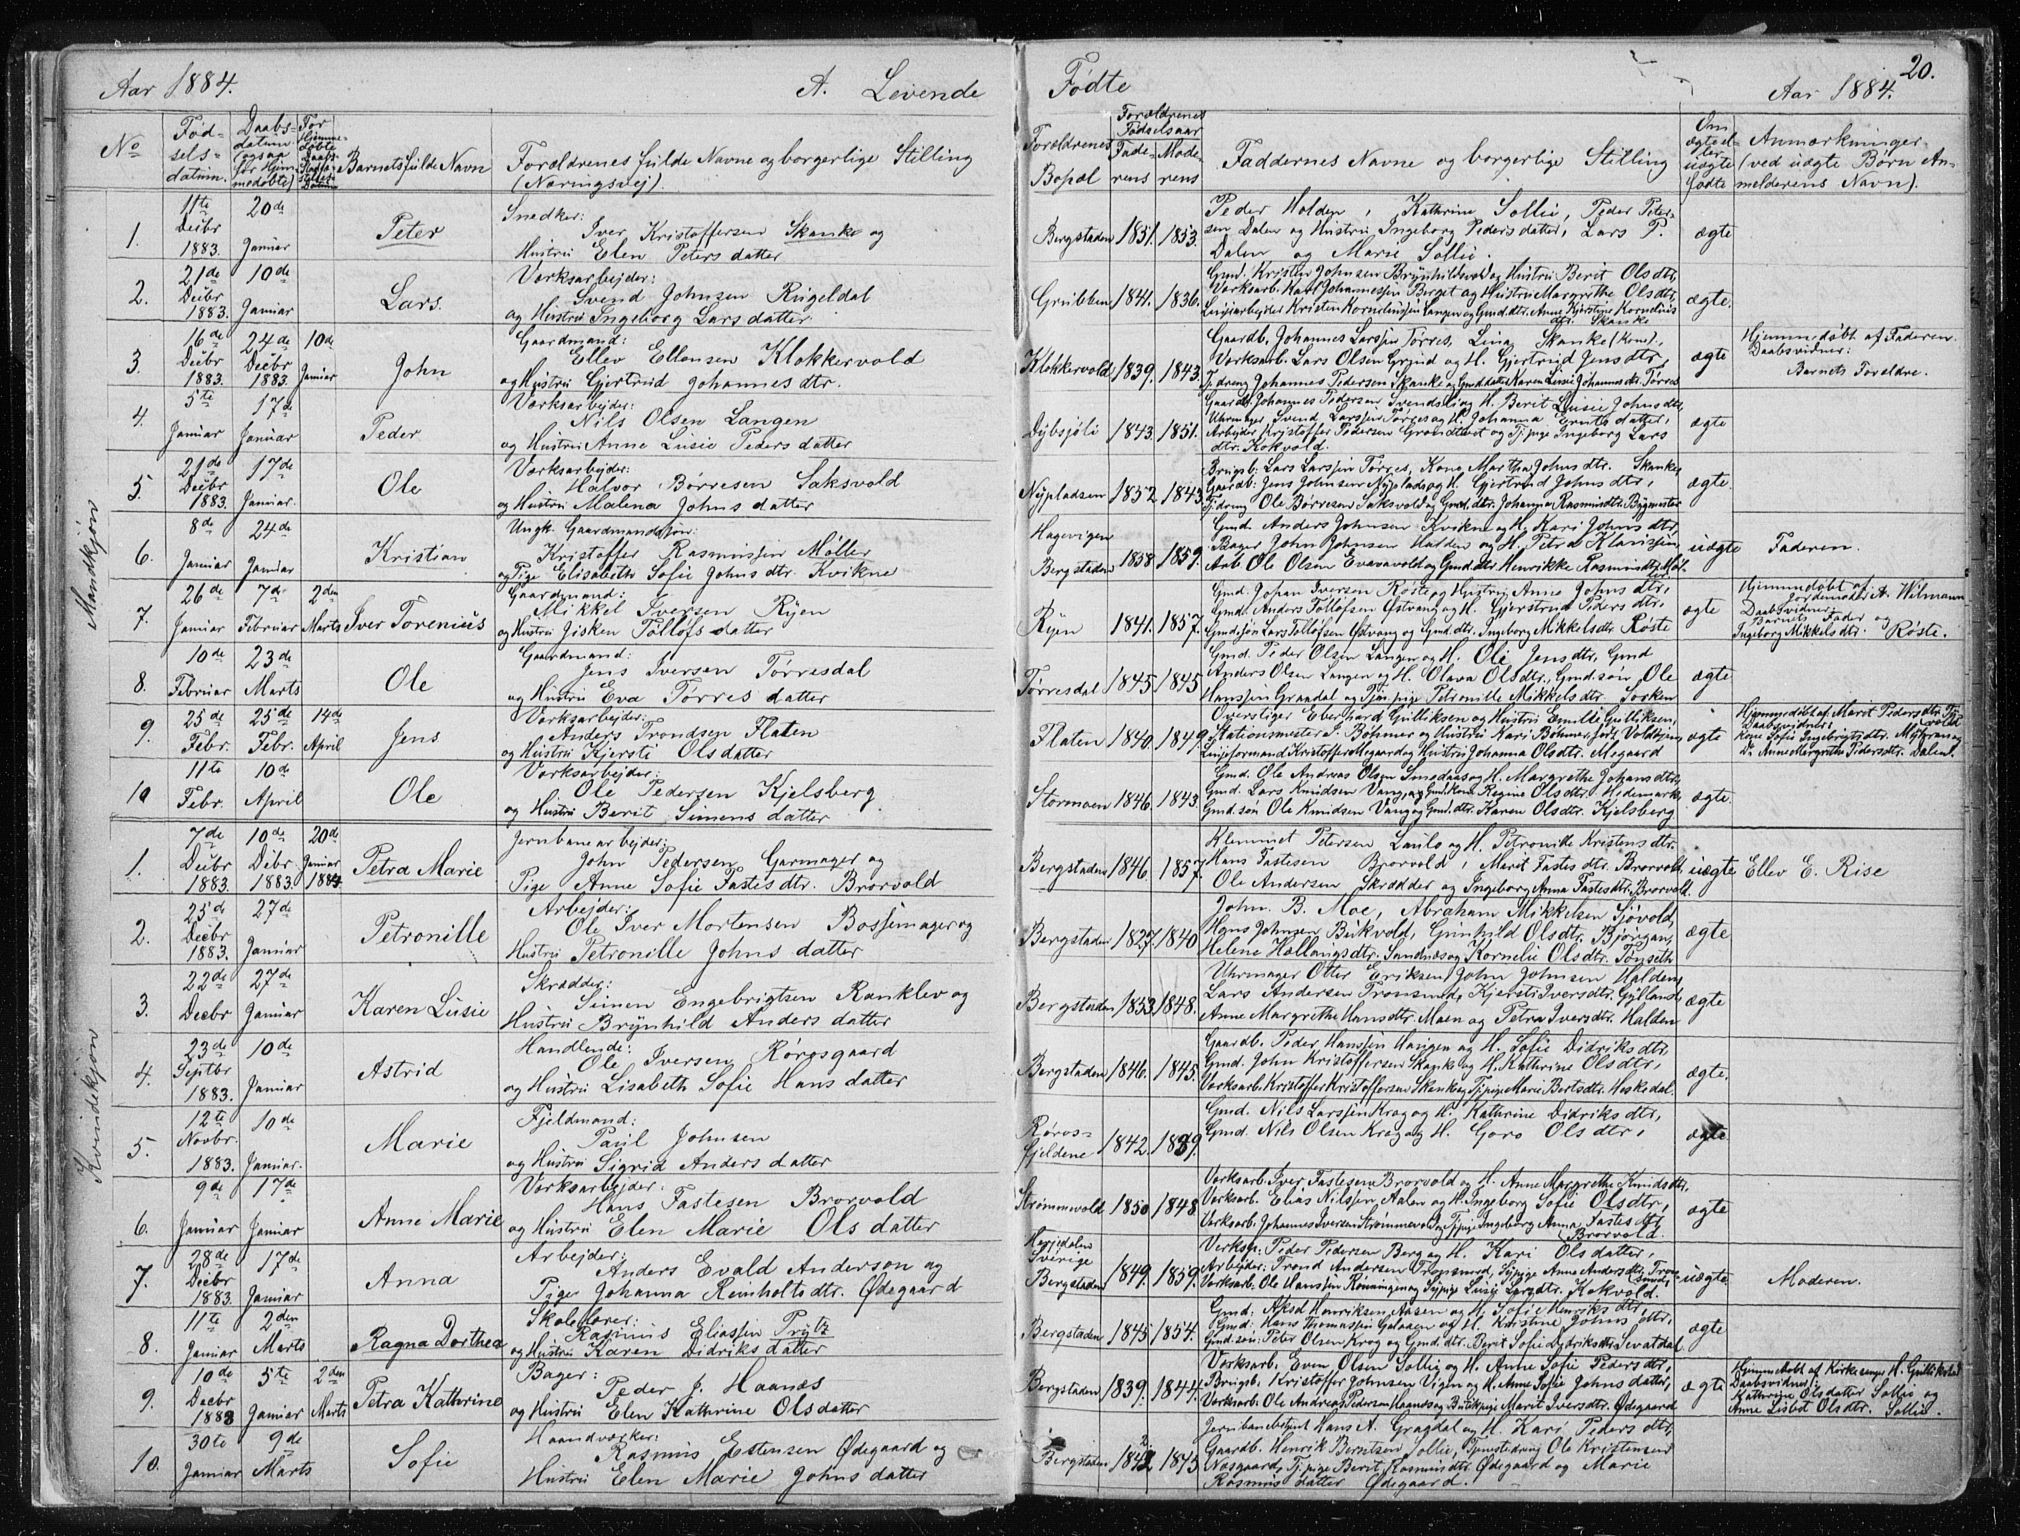 Aar 1884.
A. Levende
Fødte
Aar 1884.
20.
No
Fødselsdatum.
Daabsdatum (ogsaa for Hjemmedøbte)
Barnets fulde Navn
Forældrenes fulde Navne og borgerlige Stilling
(Næringsvej).
Forældrenes Bopæl
Forældrenes Fødselsaar
Faderens
Moderens
Faddernes Navne og borgerlige Stilling
Om ægte eller uægte fødte
Anmærkninger
(ved uægte Børn Anmelderens Navn).
Mandkjøn
1. 11te Decbr 1883. 20de Januar
Peter
Snedker:
Iver Kristoffersen Skanke og
Hustru Elen Petersdatter
Bergstaden 1851. 1853.
Peder Holden, Kathrine Sollie, Peder Peter-
sen Dalen og Hustru Ingeborg Pedersdatter, Lars P.
Dalen og Marie Sollie.
ægte
2. 21de Decbr 1883. 10de Januar
Lars.
Værksarbejder:
Svend Johnsen Rugeldal
og Hustru Ingeborg Larsdatter
Grubben 1841. 1836.
Gmd. Kristen Johnsen Brynhildsvold og Hustru Berit Olsdtr,
Værksarb. Karl Johannessen Berget og Hustru Margrethe Olsdtr,
Linjearbejder Kristen Korneliussen Langen og Gmd.dtr. Anne Kjerstine Kornelius
dtr. Skanke
ægte.
3. 16de Decbr 1883. 24de Decbr 1883. 10de Januar
John
Gaardmand:
Ellev Ellevsen Klokkervold
og Hustru Gjertrud Johannesdtr.
Klokkervold 1839. 1843.
Gaardb. Johannes Larssen Tørres, Lina Skanke (Kone),
Værksarb. Lars Olsen Grind og H. Gjertrud Jensdtr,
Tjdreng Johannes Pedersen Skanke og Gmd.datter Karen Lusie Johannesdtr. Tørres
ægte
Hjemmedøbt af Faderen.
Daabsvidner:
Barnets Forældre.
4. 5te Januar 17de Januar
Peder
Værksarbejder:
Nils Olsen Langen
og Hustru Anne Lusie Pedersdatter
Dybsjøli 1843. 1851.
Gaardb. Johannes Pedersen Svendsli og H. Berit Lusie Johnsdtr,
Uhrmager Svend Larssen Tørres og H. Johanna Berntsdatter,
Arbejder Kristoffer Pedersen Grandtvet og Tjpige Ingeborg Lars
dtr. Kokvold.
ægte
5. 21de Decbr 1883. 17de Januar.
Ole
Værksarbejder:
Halvor Børresen Saksvold
og Hustru Malena Johnsdatter
Nypladsen 1852. 1843
Brugsb. Lars Larssen Tørres, Kone Martha Johnsdtr. Skanke,
Gaardb. Jens Johnsen Nyplads og H. Gjertrud Johnsdtr,
Tjdreng Ole Børresen Saksvold og Gmd.dtr. Johanna Rasmusdtr. Bygmester
ægte.
6. 8de Januar 24de Januar
Kristian
Ungk. Gaardmandssøn:
Kristoffer Rasmussen Møller
og Pige Elisabeth Sofie Johnsdtr. Kvikne
Hagevigen
Bergstaden 1858. 1859.
Gmd. Anders Johnsen Kvikne og H. Kari Johnsdtr,
Bager John Johnsen Halden og H. Petra Klaussen,
Arb. Ole Olsen Evavold og Gmd.dtr. Henrikke Rasmusdtr. Møl-
ler
uægte
Faderen.
7. 26de Januar 7de Februar 2den Marts
Iver Torenius
Gaardmand:
Mikkel Iversen Ryen
og Hustru Jisken Tollofsdatter
Ryen 1841. 1857.
Gmd. Johan Iversen Røste og Hustru Anne Johnsdtr,
Gmd. Anders Tollofsen Østvang og H. Gjertrud Pedersdtr,
Gmdssøn Lars Tollofsen Østvang og Gmd.dtr. Ingeborg Mikkelsdtr. Røste
ægte
Hjemmedøbt af
Jordemoder A. Wilmann
Daabsvidner:
Barnets Fader og
Ingeborg Mikkelsdtr. Røste.
8. 10de Februar 23de Marts
Ole
Gaardmand:
Jens Iversen Tørresdal
og Hustru Eva Tørresdatter
Tørresdal 1845 1845
Gmd. Peder Olsen Langen og H. Ole Jensdtr, Gmd
Anders Olsen Langen og H. Olava Olsdtr, Gmd.søn Ole
Hanssen Graadal og Tjpige Petronille Mikkelsdtr. Sorken
ægte
9. 25de Febr. 25de Febr. 14de April
Jens
Værksarbejder:
Anders Trondsen Flaten
og Hustru Kjersti Olsdatter
Flaten 1840. 1849.
Overstiger Eberhard Gulliksen og Hustru Emilde Gulliksen,
Stationsmester S. Bøhmer og Hustru Kari Bøhmer født Voldsjen,
Linjeformand Kristoffer Megaard og Hustru Johanna Olsdtr. Megaard
ægte
Hjemmedøbt af Marit Pedersdtr.
Daabsvidner:
Kone Sofie Ingebrigtsdtr. og
Do Anne Margrethe Pedersdtr. Dalen.
10 11te Febr. 10de April
Ole
Værksarbejder:
Ole Pedersen Kjelsberg
og Hustru Berit Simensdatter
Stormoen 1846. 1843.
Gmd. Ole Andreas Olsen Smedaas og H. Margrethe Johansdtr,
Gmd. Lars Knudsen Vang og Gmd.kone Regine Olsdtr. Hedemark,
Gmd.søn Ole Knudsen Vang og Gmd.dtr. Karen Olsdtr. Kjelsberg
ægte.
Kvindekjøn
1. 7de Decbr 1883. 10de Decbr 1883. 20de Januar 1884
Petra Marie
Jernbanearbejder:
John Pedersen Garmager og
Pige Anne Sofie Fastesdtr. Brorvold
Bergstaden 1846. 1857.
Klemmet Petersen Laulo og H. Petronille Kristensdtr.
Hans Fastesen Brorvold, Marit Fastesdtr. Brorvold,
Ole Andersen Skrædder og Ingeborg Anna Fastesdtr. Brorvold.
uægte
Ellev E. Rise
2. 25de Decbr 1883. 27de Januar
Petronille
Arbejder:
Ole Iver Mortensen Bossemager og
Hustru Petronille Johnsdatter
Bergstaden 1827. 1840
John B. Moe, Abraham Mikkelsen Sjøvold,
Hans Johnsen Bukvold, Gunhild Olsdtr. Bjørgan,
Helene Hallangsdtr. Sundnes og Kornelie Olsdtr. Tønseth
ægte
3. 22de Decbr 27de Januar
Karen Lusie
Skrædder:
Simen Engebrigtsen Ranklev og
Hustru Brynhild Andersdatter
Bergstaden 1853. 1848.
Uhrmager Otter Eriksen, John Johnsen Halden,
Lars Andersen Tronsmed, Kjersti Iversdtr. Gulland,
Anne Margrethe Hansdtr. Moen og Petra Iversdtr. Halden
ægte
4. 23de Septbr 1883. 10de Januar
Astrid
Handlende:
Ole Iversen Rørosgaard
og Hustru Lisabeth Sofie Hansdatter
Bergstaden 1846. 1845.
Gaardb. Peder Hanssen Havigen og H. Sofie Didriksdtr,
Gmd. John Kristoffersen Skanke og H. Kathrine Olsdtr,
Værksarb. Kristoffer Kristoffersen Skanke og Tjpige Marie Berntsdtr. Heskedal.
ægte.
5. 12te Novbr. 1883. 10de Januar.
Marie
Fjeldmand:
Paul Johnsen
og Hustru Sigrid Andersdatter
Røros-
fjeldene 1842. 1839.
Gmd. Nils Larssen Krog og H. Kathrine Didriksdtr,
Gmd. Nils Olsen Krog og H. Goro Olsdtr,
ægte
6. 9de Januar 17de Januar
Anne Marie
Værksarbejder:
Hans Fastesen Brorvold
og Hustru Elen Marie Olsdatter
Strømmevold 1850 1848
Værksarb. Iver Fastesen Brorvold og H. Anne Margrethe Knudsdtr,
Værksarb. Elias Nilssen Aalen og H. Ingeborg Sofie Olsdtr,
Værksarb. Johannes Iversen Strømmevold og Tjpige Ingeborg Anna Fastesdtr
Brorvold.
ægte
7. 28de Decbr 1883. 17de Januar
Anna
Arbejder:
Anders Evald Anderson og
Pige Johanna Reinholtsdtr. Ødegaard
Herjedalen
Sverige
Bergstaden 1849. 1859.
Værksp. Peder Pedersen Berg og H. Kari Olsdatter,
Arbejder Trond Andersen Tronsmed, Sypige Anne Andersdtr. Tron-
smed,
Værksarb. Ole Hanssen Rønningen og Sypige Lusie Larsdtr. Kokvold.
uægte
Moderen.
8. 11te Januar 2den Marts
Ragna Dorthea
Skolelærer:
Rasmus Eliassen Prytz
og Hustru Karen Didriksdatter
Bergstaden 1845 1854.
Gmd. Aksel Henriksen Aasen og H. Sofie Henriksdtr,
Gmd. Hans Thomassen Galaaen og H. Kristine Johnsdtr,
Gmd.søn Peter Olsen Krog og Gmd.dtr. Berit Sofie Dydriksdtr. Sevatdal
ægte
9. 10de Decbr 1883 5te Januar 2den Marts
Petra Kathrine
Bager:
Peder J. Haanæs
og Hustru Elen Kathrine Olsdatter
Bergstaden 1839. 1844.
Værksarb. Even Olsen Sollie og H. Anne Sofie Pedersdtr,
Brugsb. Kristoffer Johnsen Vigen og H. Anne Sofie Johnsdatter,
Værksarb. Ole Andreas Pedersen Haanæs og Butikpige Marit Iversdtr. Ødegaard
ægte
Hjemmedøbt af Kirkesanger H. Gullikstad
Daabsvidner:
Kathrine Olsdatter Sollie og
Anne Lisbet Olsdtr. Sollie.
10. 30te Januar 9de Marts
Sofie
Haandværker:
Rasmus Estensen Ødegaard og
Hustru Elen Marie Johnsdatter
Bergstaden 1842 1845
Jernbanebetjent Hans A. Graadal og H. Kari Pedersdtr,
Gaardb. Henrik Berntsen Sollie, Tjenestedreng Ole Kristensen
Nosgaard, Tjpige Berit Rasmusdtr. Ødegaard og Marie
Rasmusdatter Ødegaard.